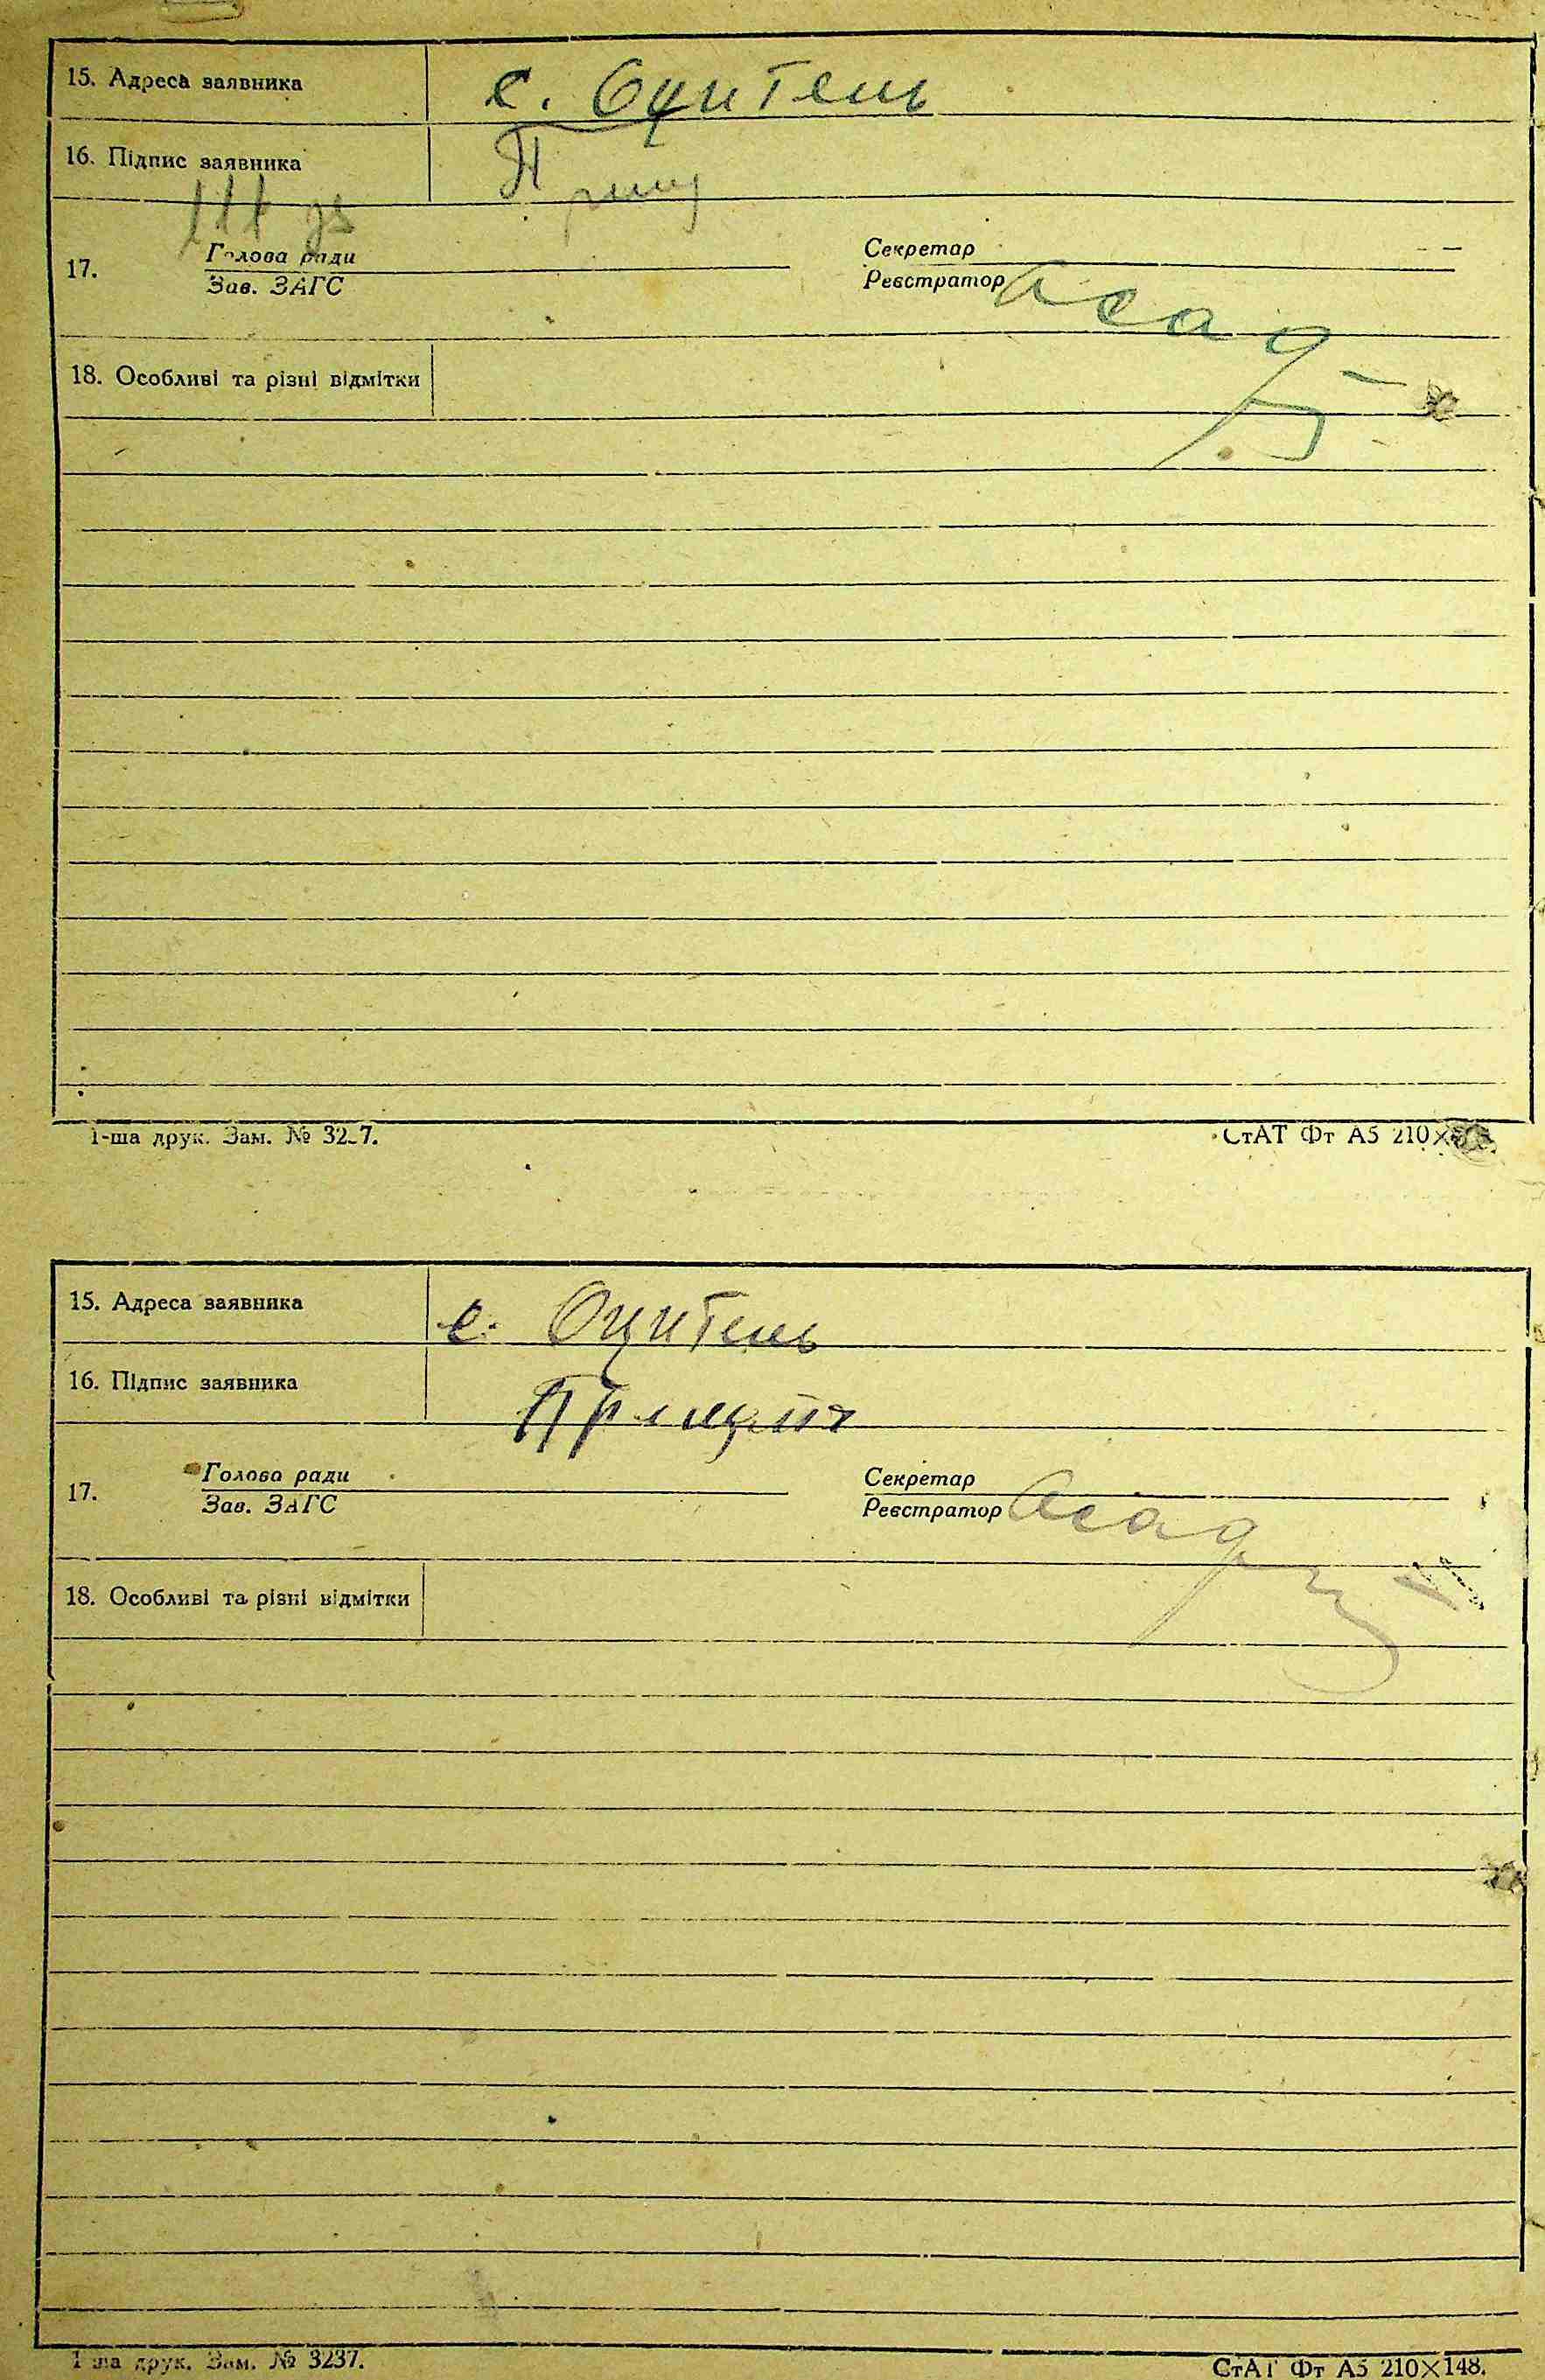 15. Адреса заявника с. Оцитень
16. Підпис заявника
17. Голова ради Секретар
Зав. ЗАГС Реєстратор
18. Особливі та різні відмітки
1-ша друк. Зам. № 32 7. СтАТ Фт А5 210×
15. Адреса заявника с. Оцитень
16. Підпис заявника
17. Голова ради Секретар
Зав. ЗАГС Реєстратор
18. Особливі та різні відмітки
1 ша друк. Зам. № 3237. СтАТ Фт А5 210×148.